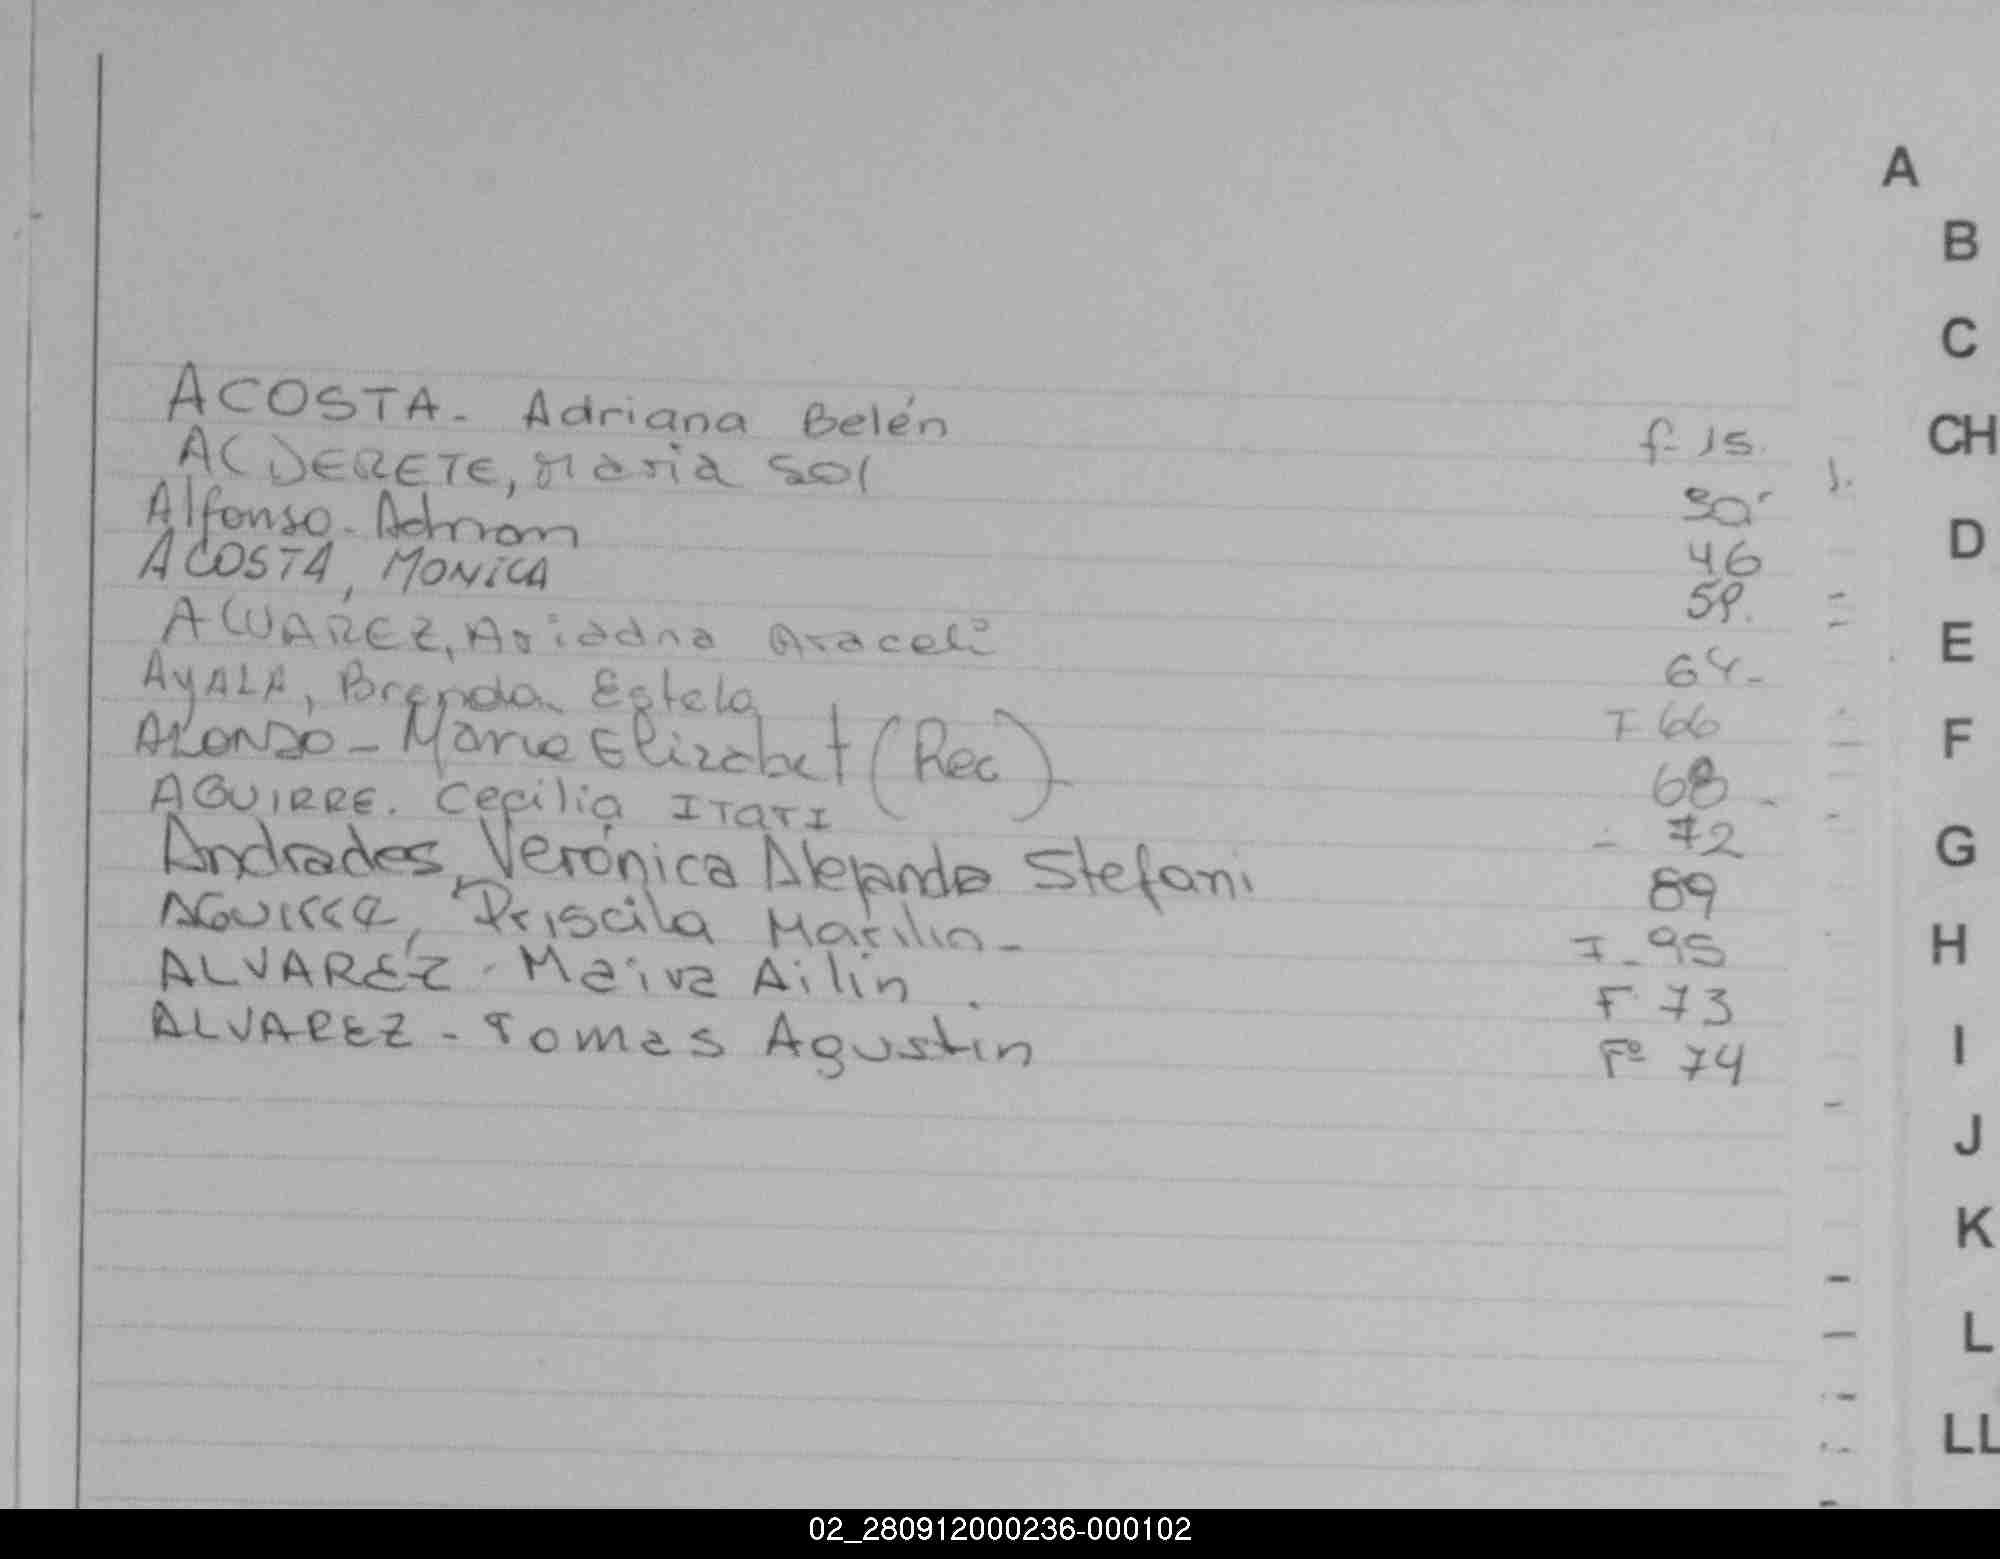 A
B
C
CH
D
E
F
G
H
I
J
K
L
LL
ACOSTA - Adriana Belén f- 15.
ALDERETE, Maria Sol 30
Alfonso - Adrian 46
ACOSTA, MONICA 59.
ALVAREZ, Ariadna Araceli 64-
AYALA, Brenda Estela F 66
ALONSO - Maria Elizabet (Rec) 68 -
AGUIRRE. Cecilia ITATI - 72
Andrades, Verónica Alejandra Stefani 89
AGUIRRE, Priscila Marilin - F - 95
ALVAREZ - Maiva Ailin . F 73
ALVAREZ - Tomas Agustin Fº 74
02_280912000236-000102